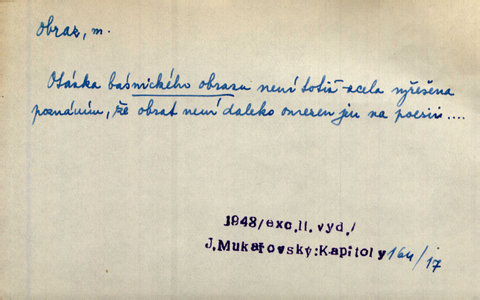 obraz, m.
Otázka básnického obrazu není totiž zcela vyřešena
poznáním, že obraz není daleko omezen jen na poesii ....
1948/exc.II.vyd./
J.Mukařovský:Kapitoly 164/17